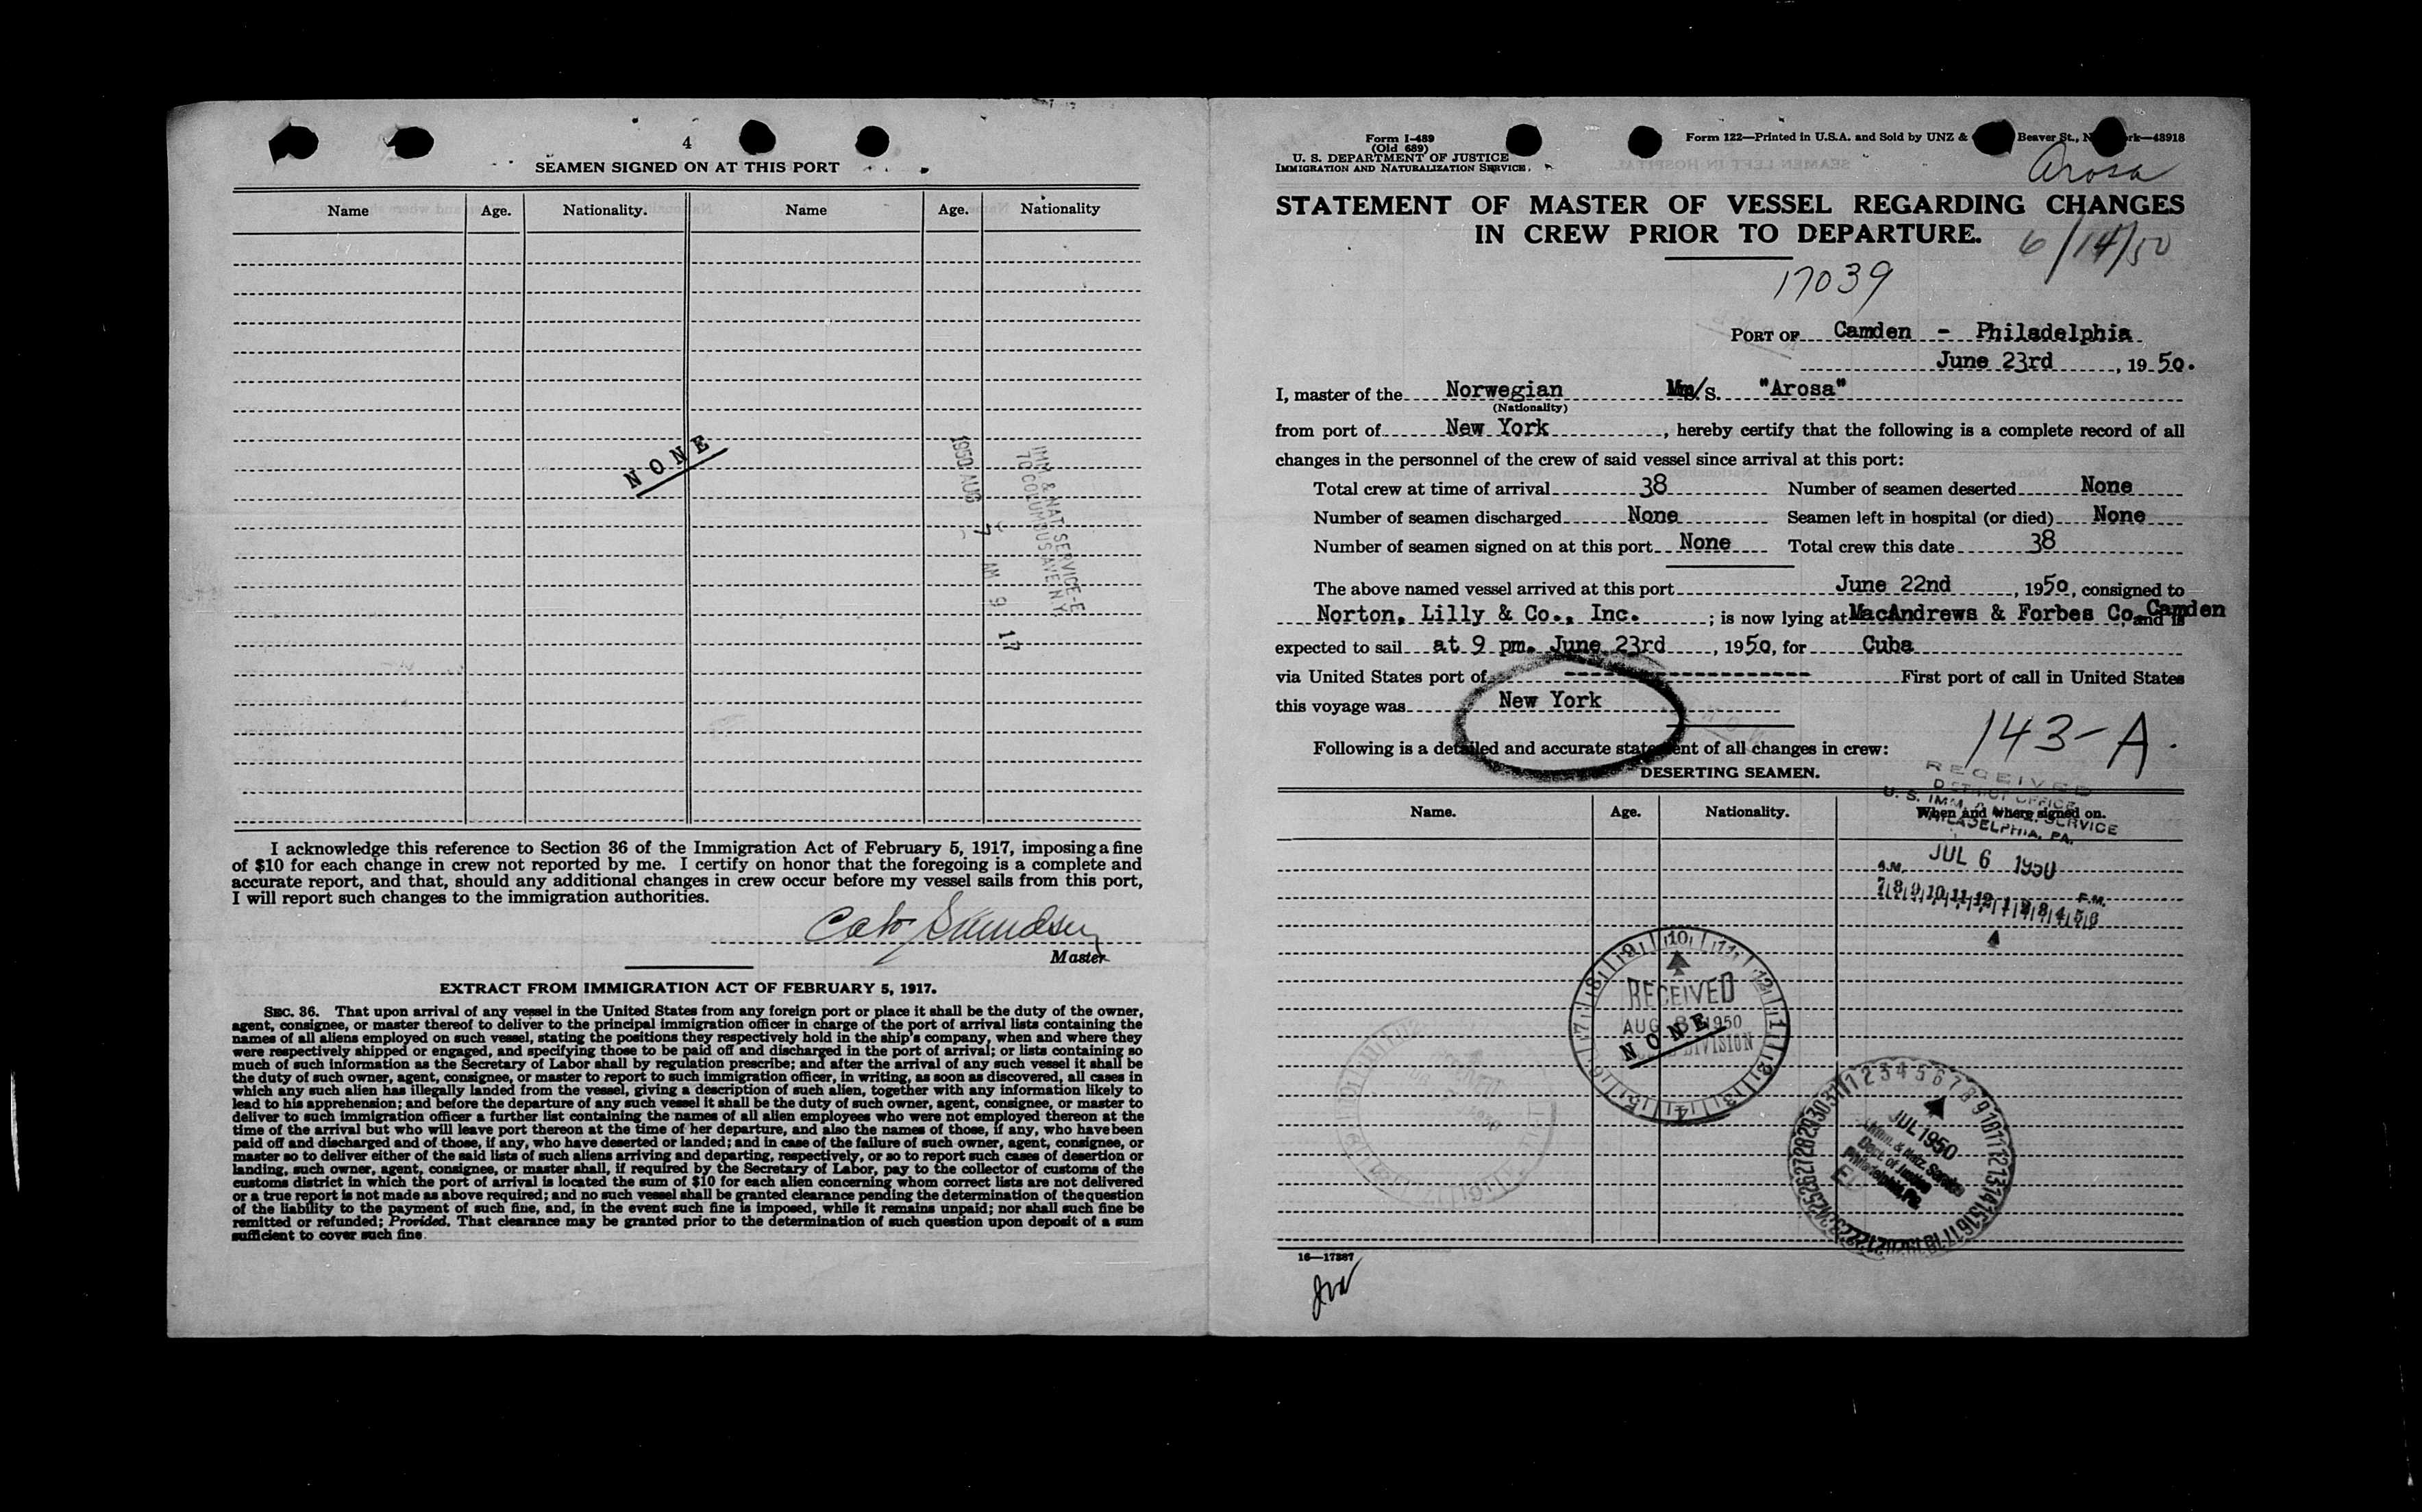 4
SEAMEN SIGNED ON AT THIS PORT
Name Age. Nationality. Name Age. Nationality
NONE
IMM & NAT SERVICE-E
70 COLUMBUS AVE N.Y.
1950 AUG 7 AM 9 17
I acknowledge this reference to Section 36 of the Immigration Act of February 5, 1917, imposing a fine
of $10 for each change in crew not reported by me. I certify on honor that the foregoing is a complete and
accurate report, and that, should any additional changes in crew occur before my vessel sails from this port,
I will report such changes to the immigration authorities.
Master
EXTRACT FROM IMMIGRATION ACT OF FEBRUARY 5, 1917.
SEC. 36. That upon arrival of any vessel in the United States from any foreign port or place it shall be the duty of the owner,
agent, consignee, or master thereof to deliver to the principal immigration officer in charge of the port of arrival lists containing the
names of all aliens employed on such vessel, stating the positions they respectively hold in the ship's company, when and where they
were respectively shipped or engaged, and specifying those to be paid off and discharged in the port of arrival; or lists containing so
much of such information as the Secretary of Labor shall by regulation prescribe; and after the arrival of any such vessel it shall be
the duty of such owner, agent, consignee, or master to report to such immigration officer, in writing, as soon as discovered, all cases in
which any such alien has illegally landed from the vessel, giving a description of such alien, together with any information likely to
lead to his apprehension; and before the departure of any such vessel it shall be the duty of such owner, agent, consignee, or master to
deliver to such immigration officer a further list containing the names of all alien employees who were not employed thereon at the
time of the arrival but who will leave port thereon at the time of her departure, and also the names of those, if any, who have been
paid off and discharged and of those, if any, who have deserted or landed; and in case of the failure of such owner, agent, consignee, or
master so to deliver either of the said lists of such aliens arriving and departing, respectively, or so to report such cases of desertion or
landing, such owner, agent, consignee, or master shall, if required by the Secretary of Labor, pay to the collector of customs of the
customs district in which the port of arrival is located the sum of $10 for each alien concerning whom correct lists are not delivered
or a true report is not made as above required; and no such vessel shall be granted clearance pending the determination of the question
of the liability to the payment of such fine, and, in the event such fine is imposed, while it remains unpaid; nor shall such fine be
remitted or refunded; Provided, That clearance may be granted prior to the determination of such question upon deposit of a sum
sufficient to cover such fine.
Form I-489
(Old 689)
U. S. DEPARTMENT OF JUSTICE
IMMIGRATION AND NATURALIZATION SERVICE.
Form 122—Printed in U.S.A. and Sold by UNZ & Beaver St., N rk—48918
Arosa
STATEMENT OF MASTER OF VESSEL REGARDING CHANGES
IN CREW PRIOR TO DEPARTURE.
6/14/50
17039
PORT OF Camden - Philadelphia
June 23rd, 1950.
I, master of the Norwegian Mm/S. "Arosa"
(Nationality)
from port of New York, hereby certify that the following is a complete record of all
changes in the personnel of the crew of said vessel since arrival at this port:
Total crew at time of arrival 38 Number of seamen deserted None
Number of seamen discharged None Seamen left in hospital (or died) None
Number of seamen signed on at this port None Total crew this date 38
The above named vessel arrived at this port June 22nd, 1950, consigned to
Norton, Lilly & Co., Inc. ; is now lying at MacAndrews & Forbes Co, Camden and is
expected to sail at 9 pm. June 23rd, 1950, for Cuba
via United States port of ---------------------- First port of call in United States
this voyage was New York
143-A.
Following is a detailed and accurate statement of all changes in crew:
DESERTING SEAMEN.
Name. Age. Nationality. When and where signed on.
RECEIVED
DISTRICT OFFICE
U. S. IMM. & NATZ. SERVICE
PHILADELPHIA, PA.
JUL 6 1950
A.M. P.M.
7 8 9 10 11 12 1 2 3 4 5 6
RECEIVED
AUG 8 1950
DIVISION
NONE
JUL 1950
Imm. & Natz. Service
Dept. of Justice
Philadelphia, Pa.
16—17387